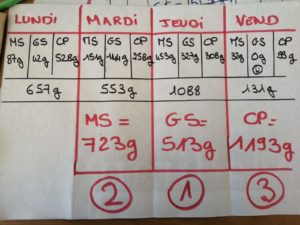 LUNDI MARDI JEUDI VEND
MS GS CP MS GS CP MS GS CP MS GS CP
87g 42g 528g 151g 144g 258g 453g 327g 308g 32g 0g 99g
657g 553g 1088 131g
MS = GS= CP=
723g 513g 1193g
2 1 3